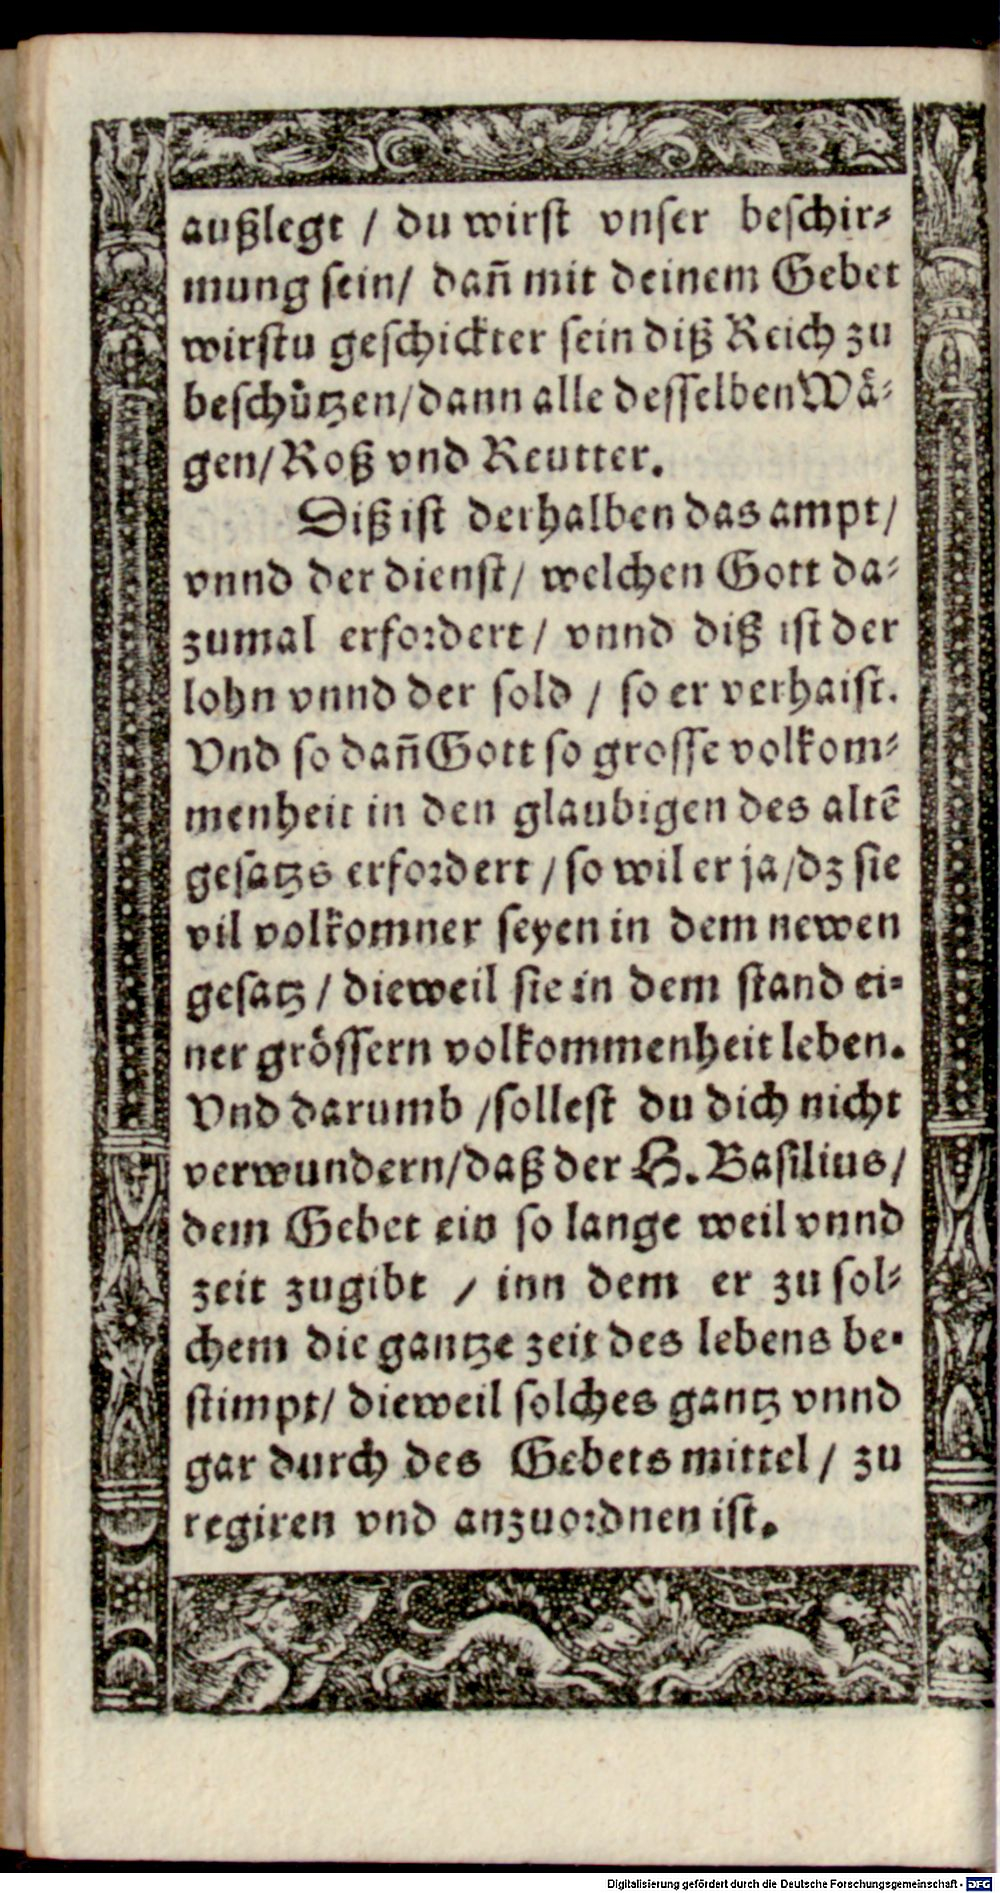 außlegt / du wirst vnser beschir⸗
mung sein/ dañ mit deinem Gebet
wirstu geschickter sein diß Reich zu
beschützen/dann alle desselben Wä⸗
gen/Roß vnd Reutter.
Diß ist derhalben das ampt/
vnnd der dienst/ welchen Gott da⸗
zumal erfordert/ vnnd diß ist der
lohn vnnd der sold / so er verhaist.
Vnd so dañ Gott so grosse volkom⸗
menheit in den glaubigen des altẽ
gesatzs erfordert / so wil er ja/dz sie
vil volkomner seyen in dem newen
gesatz / dieweil sie in dem stand ei⸗
ner grössern volkommenheit leben.
Vnd darumb /sollest du dich nicht
verwundern/daß der H. Basilius/
dem Gebet ein so lange weil vnnd
zeit zugibt / inn dem er zu sol⸗
chem die gantze zeit des lebens be⸗
stimpt/ dieweil solches gantz vnnd
gar durch des Gebets mittel / zu
regiren vnd anzuordnen ist.
Digitalisierung gefördert durch die Deutsche Forschungsgemeinschaft - DFG